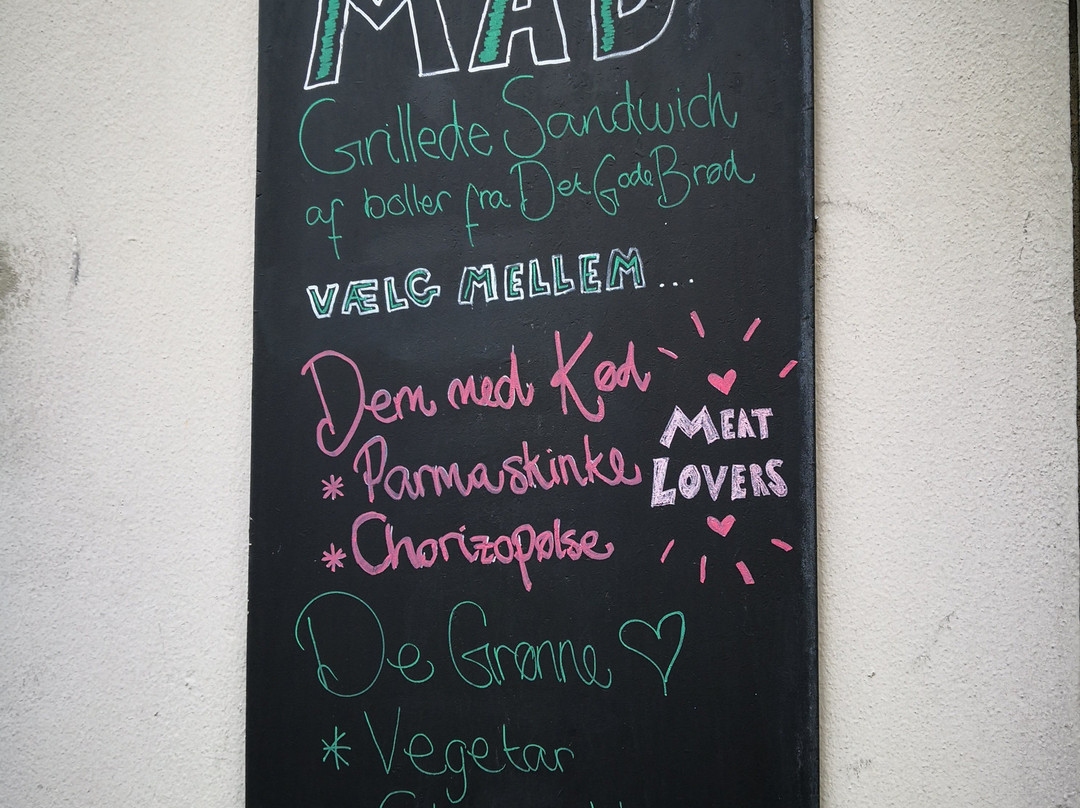 MAD
Grillede Sandwich
af boller fra Det Gode Brød
VÆLG MELLEM...
Dem med Kød
* Parmaskinke
* Chorizopølse
MEAT
LOVERS
De Grønne
* Vegetar